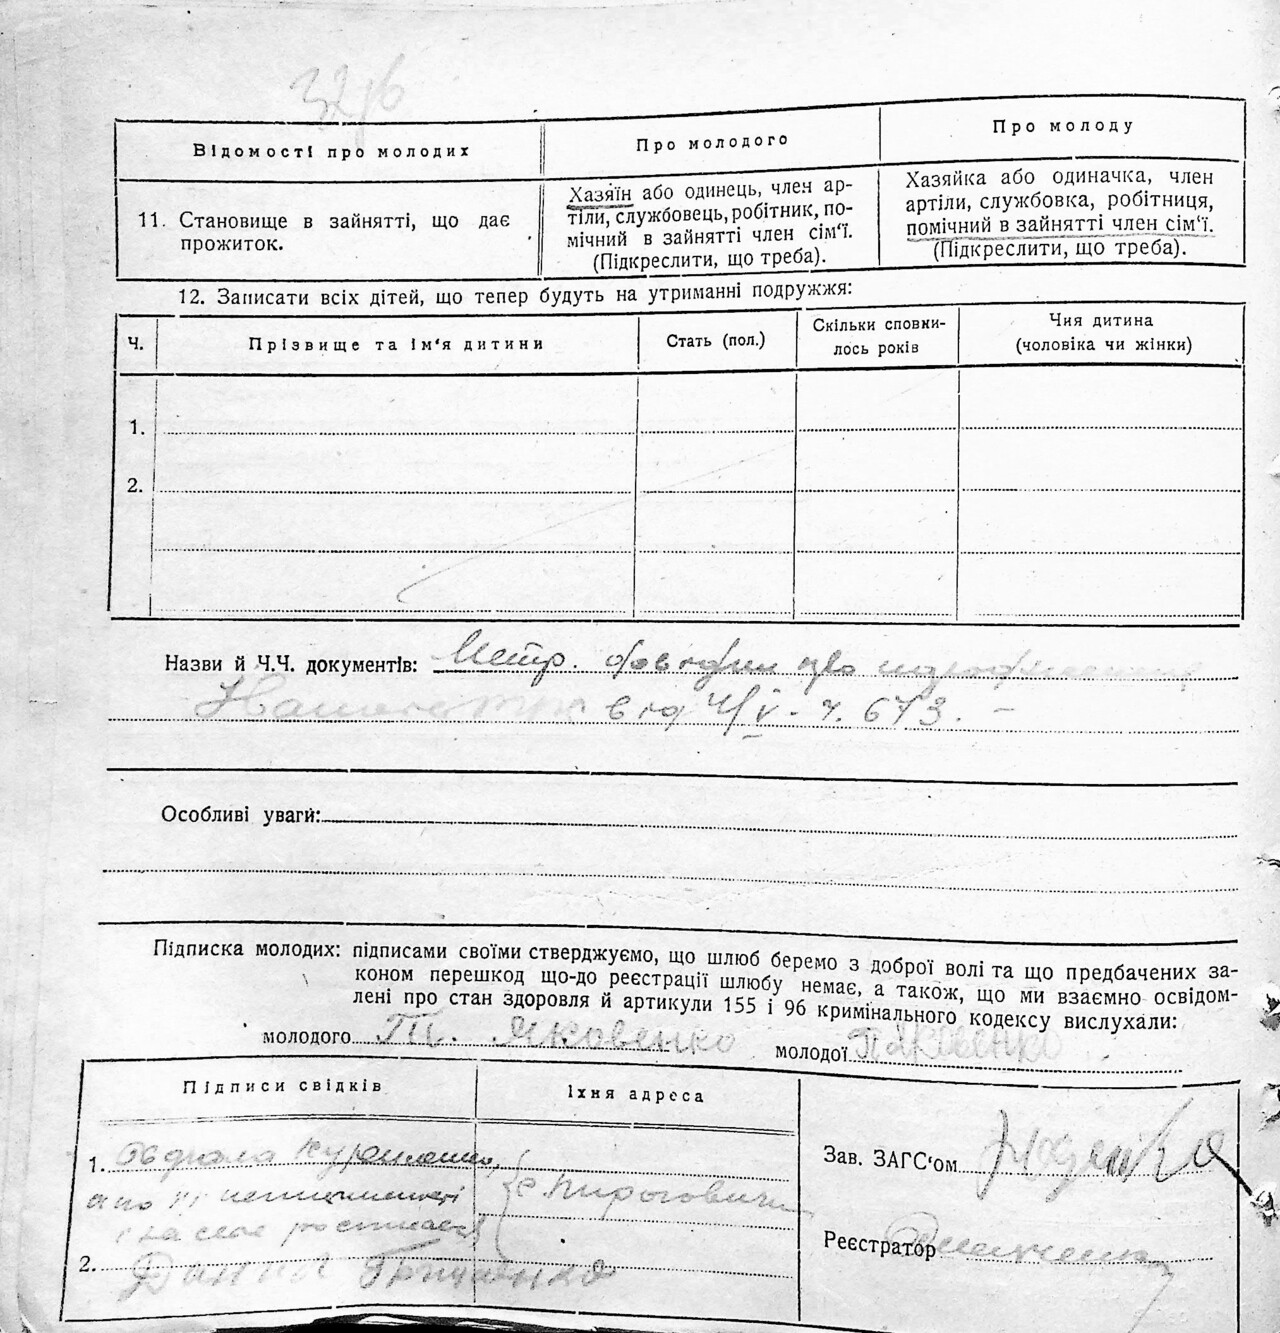 Відомості про молодих
Про молодого
Про молоду
11. Становище в зайнятті, що дає
прожиток.
Хазяїн або одинець, член ар-
тіли, службовець, робітник, по-
мічний в зайнятті член сім‘ї.
(Підкреслити, що треба).
Хазяйка або одиначка, член
артіли, службовка, робітниця,
помічний в зайнятті член сім‘ї.
(Підкреслити, що треба).
12. Записати всіх дітей, що тепер будуть на утриманні подружжя:
Ч.
Прізвище та ім‘я дитини
Стать (пол.)
Скільки сповни-
лось років
Чия дитина
(чоловіка чи жінки)
1.
2.
Назви й Ч.Ч. документів: Метр. про
від 4/V - ч. 673. -
Особливі уваги:
Підписка молодих: підписами своїми стверджуємо, що шлюб беремо з доброї волі та що предбачених за-
коном перешкод що-до реєстрації шлюбу немає, а також, що ми взаємно освідом-
лені про стан здоровля й артикули 155 і 96 кримінального кодексу вислухали:
молодого Яковенко молодої П Яковенко
Підписи свідків
Їхня адреса
1.
а по її неписьменості
2. Данило Гриценко
Зав. ЗАГС‘ом
Реєстратор